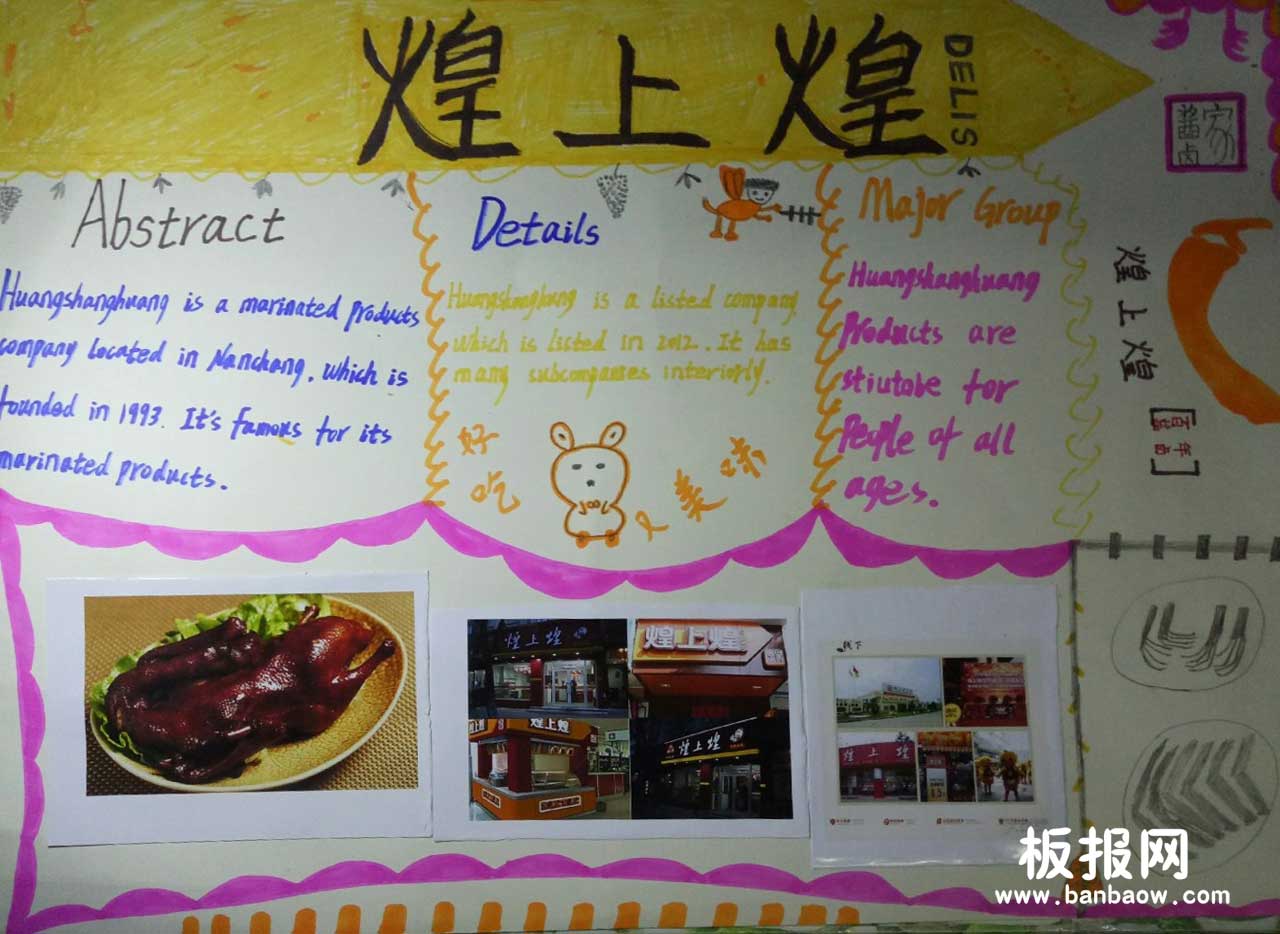 煌上煌
DELIS
Abstract
Huangshanghuang is a marinated products
company located in Nanchang, which is
founded in 1993. It's famous for its
marinated products.
Details
Huangshanghuang is a listed company,
which is listed in 2012. It has
many subcompanies interiorly.
好吃
又美味
Major Group
Huangshanghuang
Products are
stiutabe for
People of all
ages.
酱卤
家
煌上煌
百年
酱卤
煌上煌
煌上煌
煌上煌
煌上煌
线下
煌上煌
板报网
www.banbaow.com